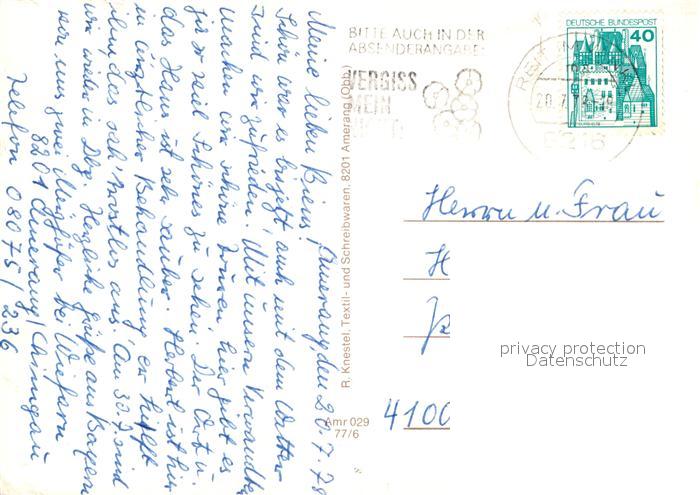 Amerang, den 20.7.78
Meine lieben Biens!
Schön war es bisjetzt, auch mit dem Wetter
sind wir zufrieden. Mit unsern Verwandten
machen wir schöne Touren, hier gibt es
ja so viel Schönes zu sehen. Der Ort u.
das Haus ist sehr sauber. Herbert ist hier
in ärztlicher Behandlung, er hilft
ihm, das sah trostlos aus. Am 30.7. sind
wir wieder in Dbg. Herzliche Grüße aus Bayern
von uns zwei bei Wiefarn
8201 Amerang / Chiemgau
Telefon 08075/236
R. Knestel, Textil- und Schreibwaren, 8201 Amerang (Obb.)
Amr 029
77/6
BITTE AUCH IN DER
ABSENDERANGABE:
VERGISS
MEIN
DEUTSCHE BUNDESPOST
40
20.7.78
Herrn u. Frau
H
Je
4100
privacy protection
Datenschutz